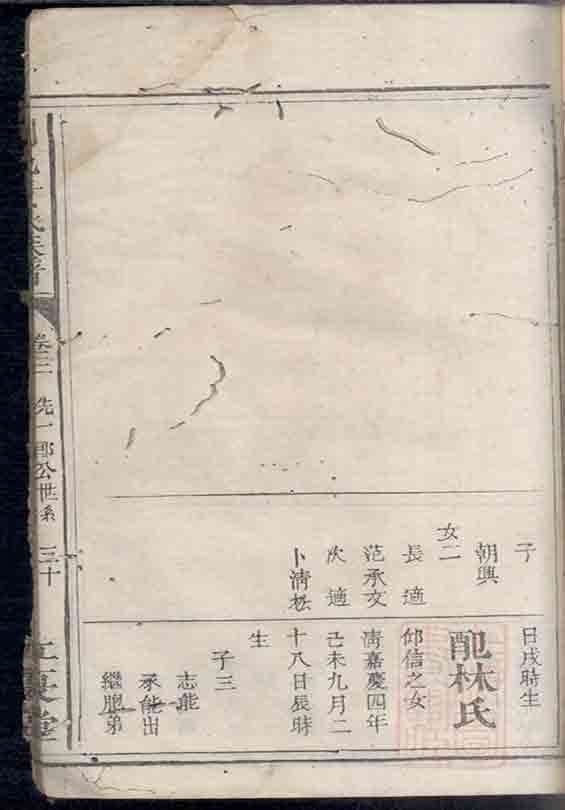 子
朝興
女二
長適
范承文
次適
卜清松
日戌時生
配林氏
邱信之女
清嘉慶四年
己未九月二
十八日辰時
生
子三
志能
承能出
繼胞弟
氏族譜
卷三
洗一郎公世系
三十
江夏堂